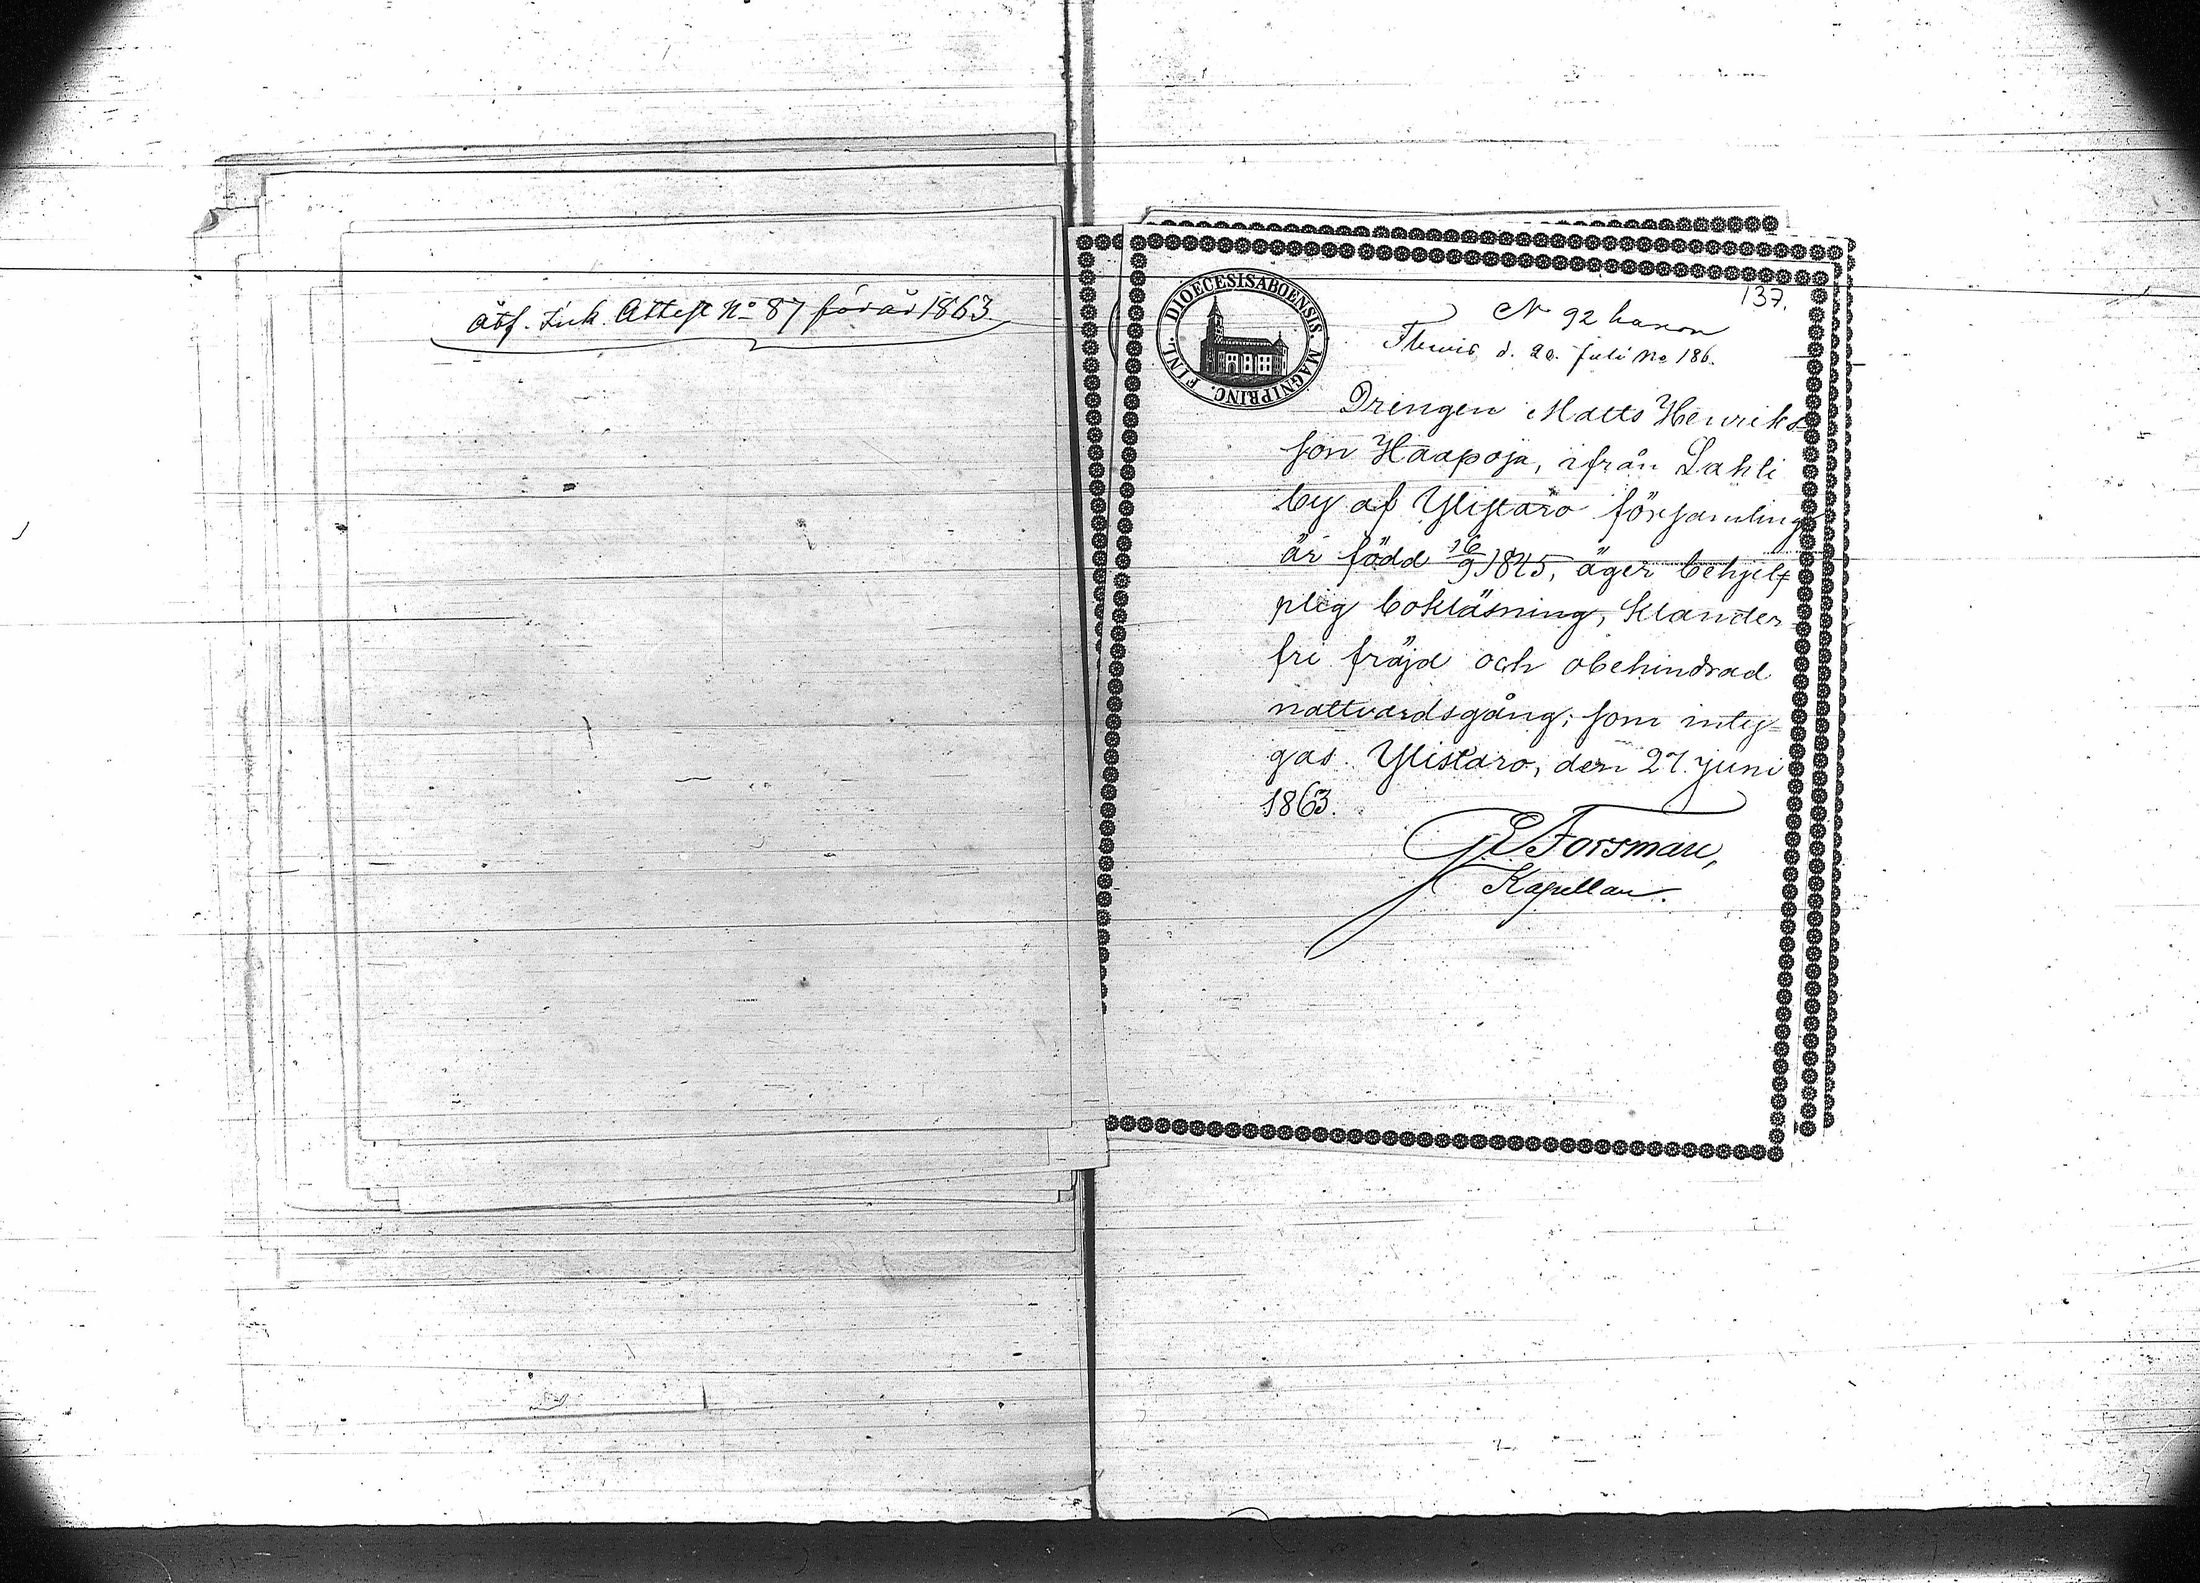 Åbf. Ink. Attest No 87 för år 1863
137.
DIOECESIS ABOENSIS. MAGNI PRINC. FINL.
No 92
d. 20. Juli 186.
Drengen Matts Henriks-
son Haapoja, ifrån Lahti
by af Ylistaro församling
är född 16/9 1845, äger behjelp-
plig bokläsning, klander-
fri fräjd och obehindrad
nattvardsgång; som intyg-
gas. Ylistaro, den 27. juni
1863.
G E Forsman,
Kapellan.